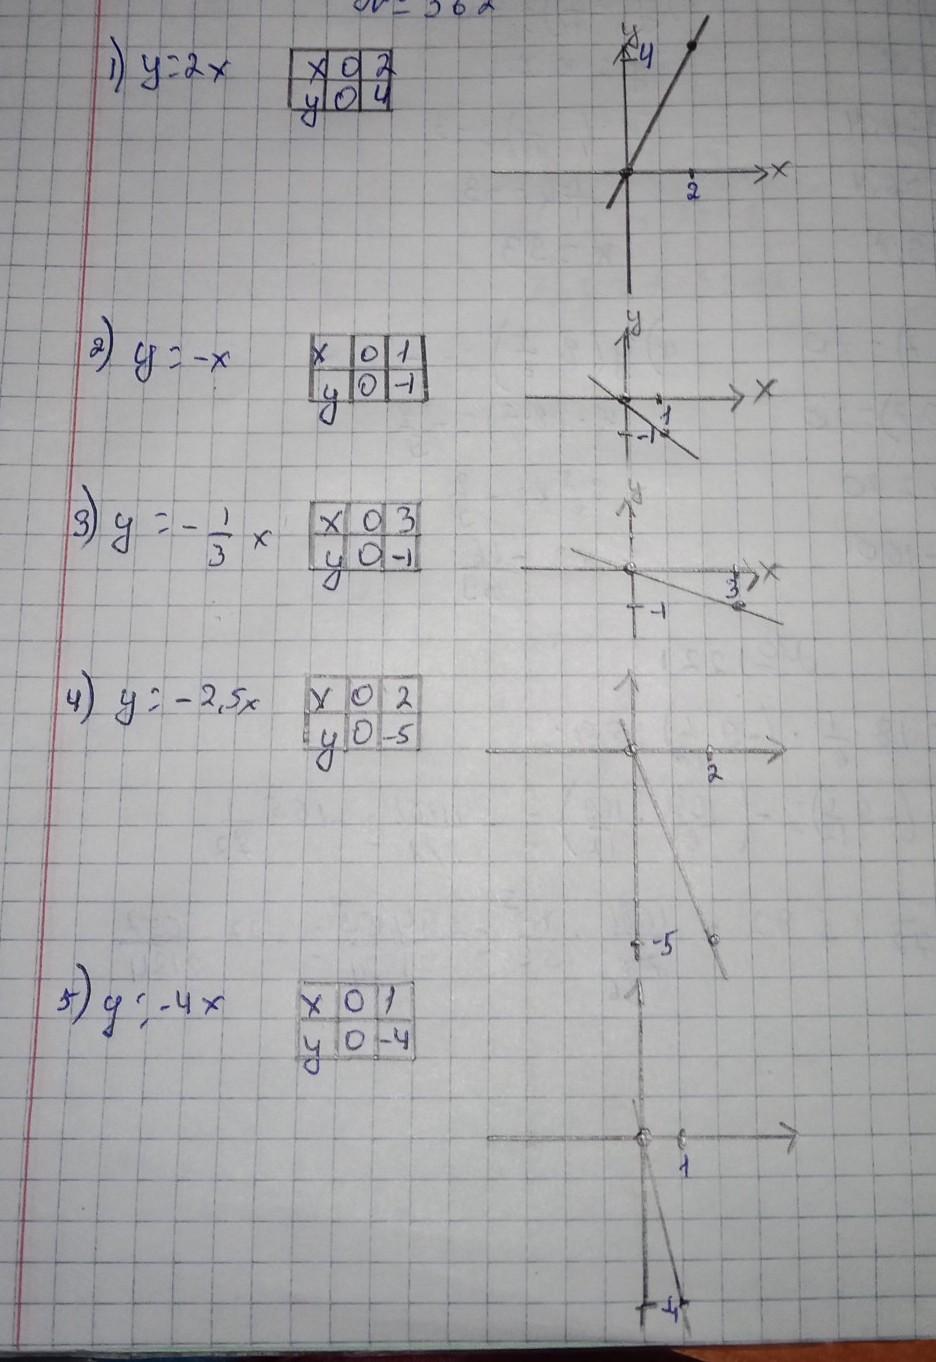 № 362
1) y=2x
x 0 2
y 0 4
y
4
x
2
2) y=-x
x 0 1
y 0 -1
y
x
1
-1
3) y=-1/3 x
x 0 3
y 0 -1
y
x
3
-1
4) y=-2,5x
x 0 2
y 0 -5
2
-5
5) y=-4x
x 0 1
y 0 -4
1
-4